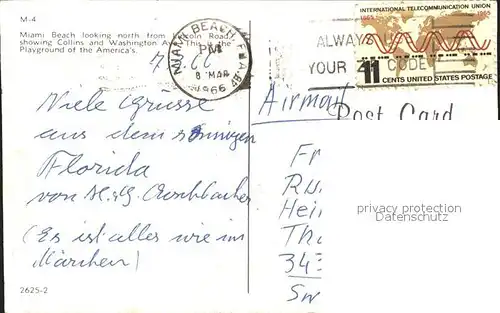 M-4
Miami Beach looking north from Lincoln Road
showing Collins and Washington Ave. This is the
Playground of the America's.
MIAMI BEACH, FLA.
PM
8 MAR
1966
ALWAYS U
YOUR CODE
INTERNATIONAL TELECOMMUNICATION UNION
1865 1965
11 CENTS UNITED STATES POSTAGE
Airmail
Post Card
Viele Grüsse
aus dem sonnigen
Florida
von
(Es ist alles wie im
Märchen)
2625-2
F
R
Hei
Th
343
Sw
privacy protection
Datenschutz